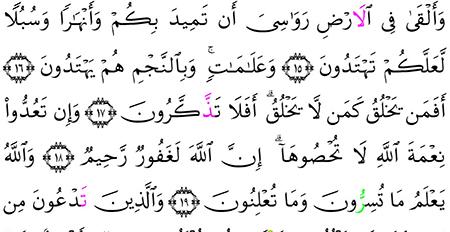 وَأَلْقَىٰ فِى الْأَرْضِ رَوَٰسِىَ أَن تَمِيدَ بِكُمْ وَأَنْهَٰرًا وَسُبُلًا
لَّعَلَّكُمْ تَهْتَدُونَ ﴿١٥﴾ وَعَلَٰمَٰتٍ ۚ وَبِالنَّجْمِ هُمْ يَهْتَدُونَ ﴿١٦﴾
أَفَمَن يَخْلُقُ كَمَن لَّا يَخْلُقُ ۗ أَفَلَا تَذَّكَّرُونَ ﴿١٧﴾ وَإِن تَعُدُّوا۟
نِعْمَةَ اللَّهِ لَا تُحْصُوهَآ ۗ إِنَّ اللَّهَ لَغَفُورٌ رَّحِيمٌ ﴿١٨﴾ وَاللَّهُ
يَعْلَمُ مَا تُسِرُّونَ وَمَا تُعْلِنُونَ ﴿١٩﴾ وَالَّذِينَ تَدْعُونَ مِن